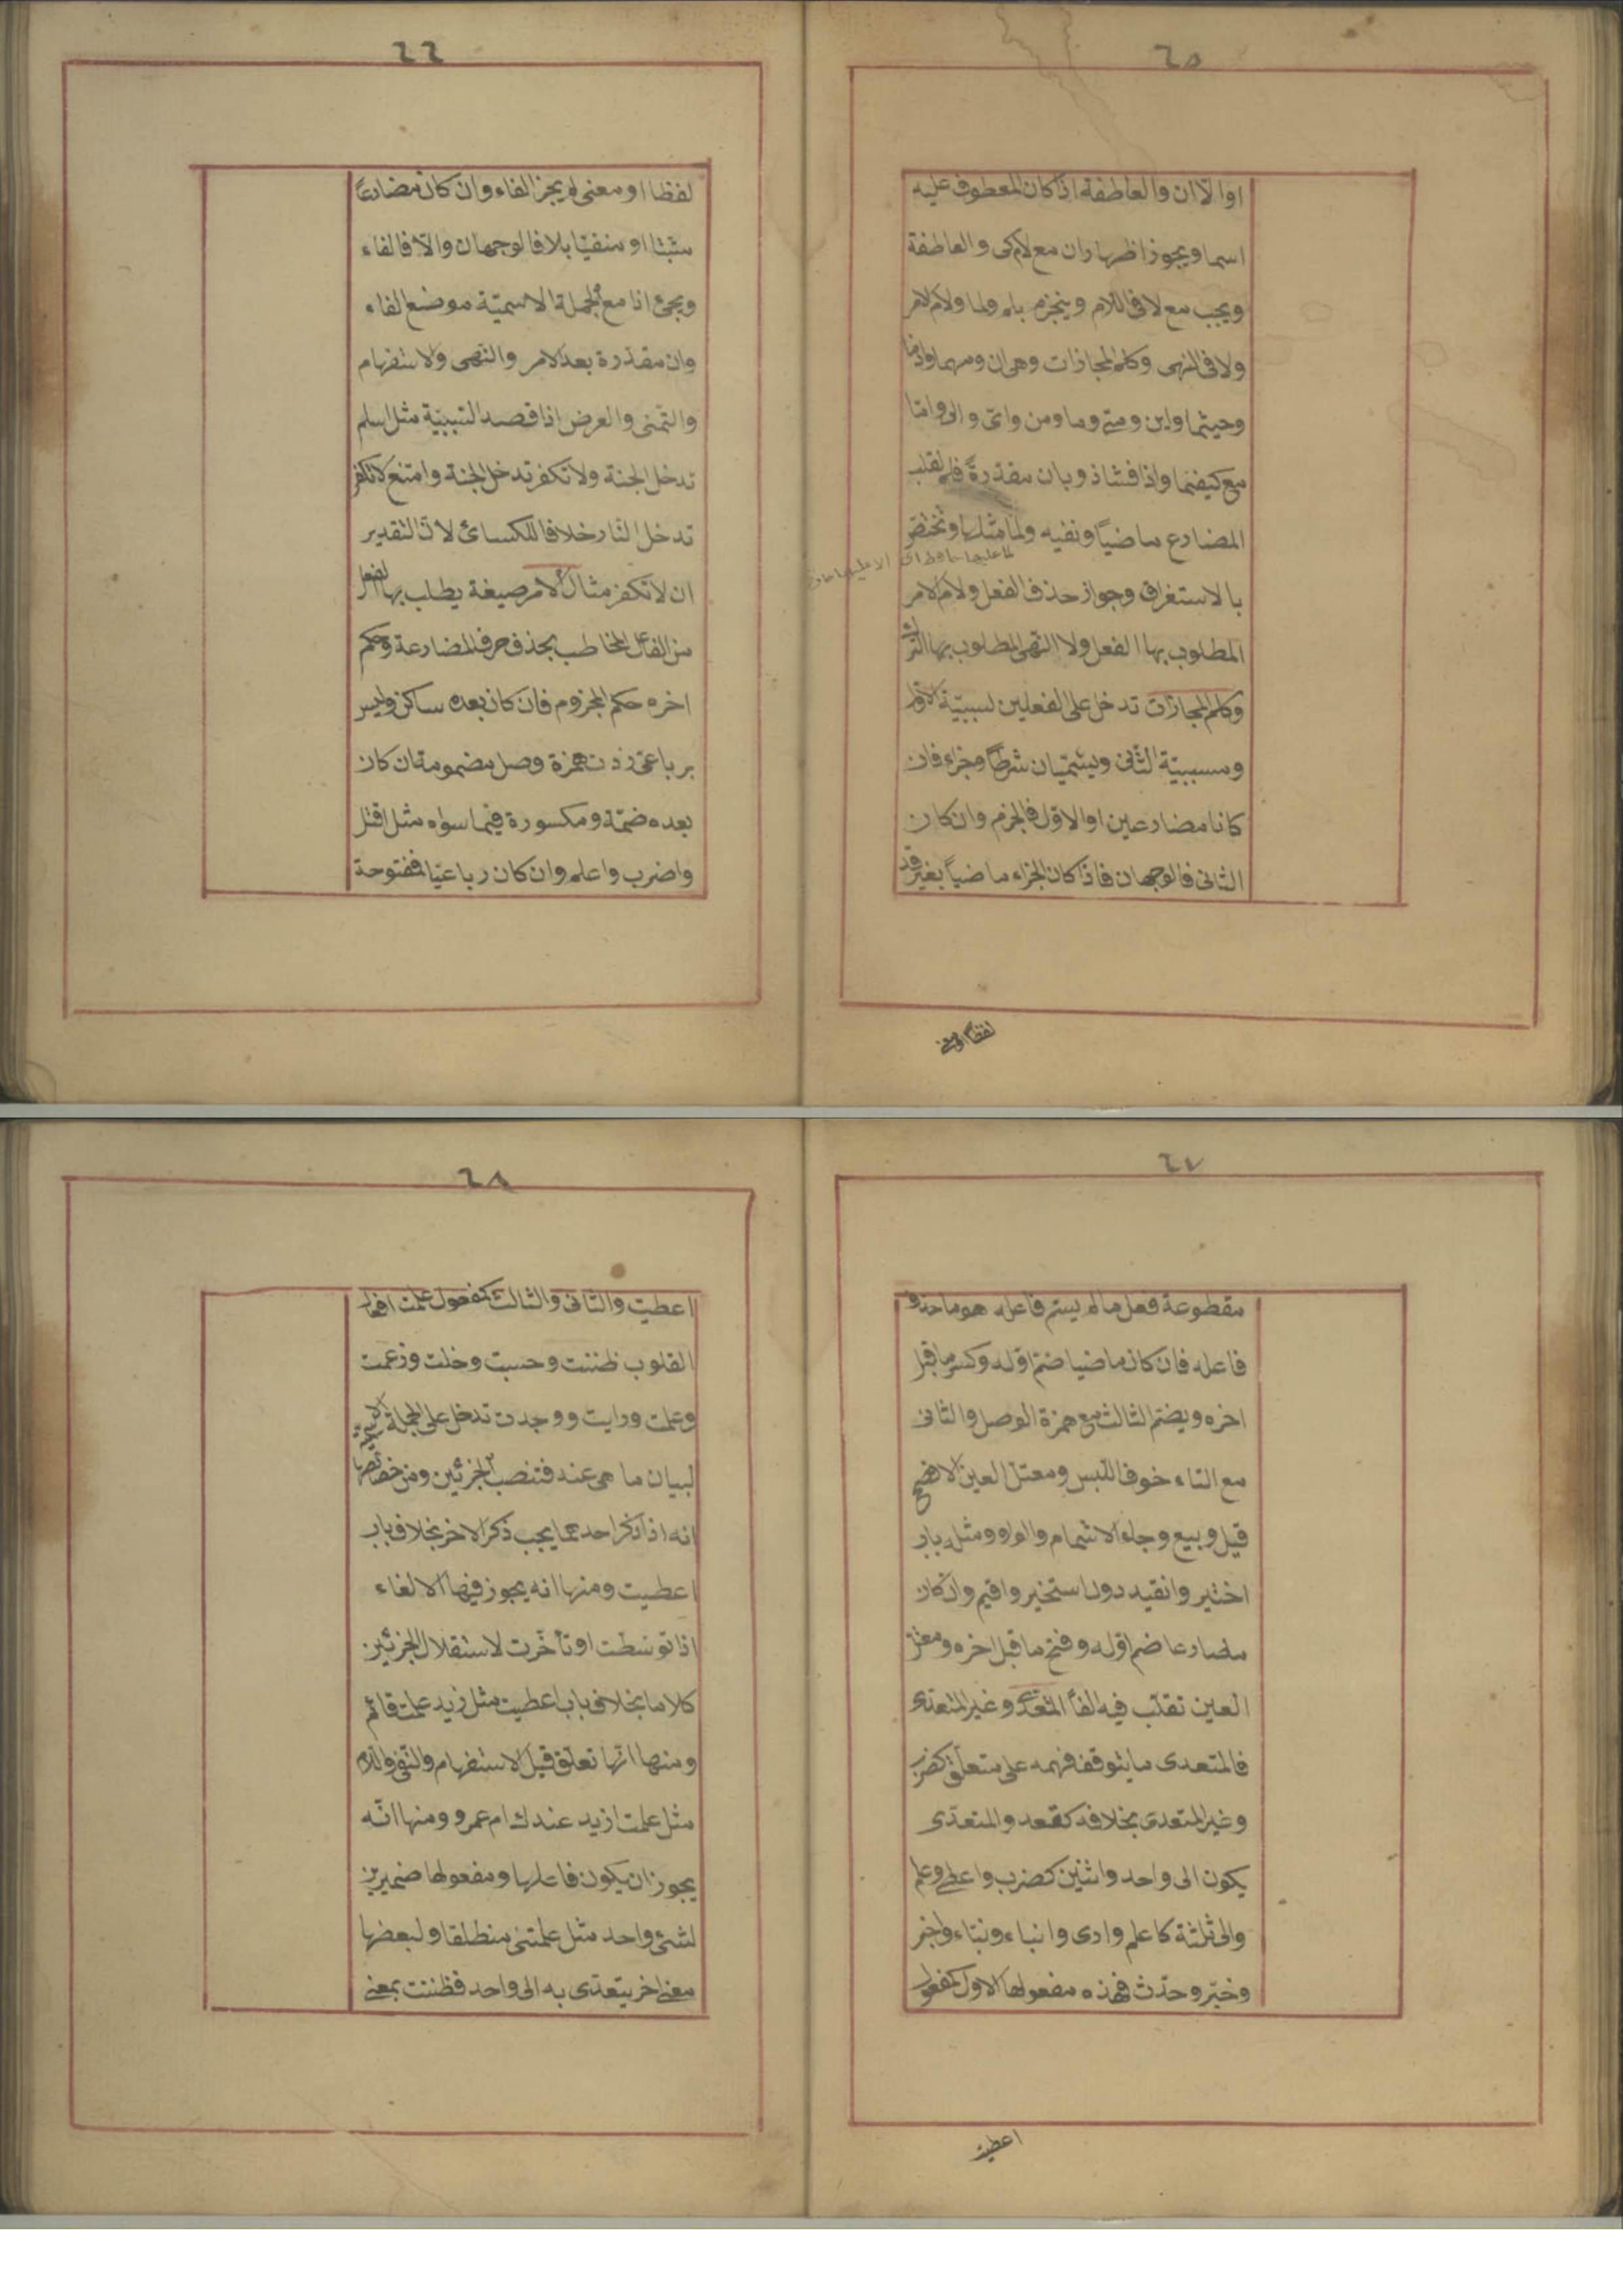 ٦٥
او الا ان والعاطفة اذا كان المعطوف عليه
اسما ويجوز اظهار ان مع لام كى والعاطفة
ويجب مع لا فى اللام وينجزم بلم ولما ولام الامر
ولا فى النهى وكلم المجازات وهى ان ومهما واذما
وحيثما واين ومتى وما ومن واىّ وانى واما
مع كيفما واذا فشاذ وبان مقدرةً فلم لقلب
المضارع ماضيًا ونفيه ولمّا مثلها وتختصّ
بالاستغراق وجواز حذف الفعل ولام الامر
المطلوب بها الفعل ولا النهى المطلوب بها الترك
وكلم المجازات تدخل على الفعلين لسببيّة الاوّل
ومسببيّة الثانى ويسمّيان شرطًا وجزاء فان
كانا مضارعين او الاوّل فالجزم وان كان
الثانى فالوجهان فاذا كان الجزاء ماضياً بغير قد
لفظاً او معنى
٦٦
لفظا او معنى لم يجز الفاء وان كان مضارعاً
مثبتا او منفيّا بلا فالوجهان والّا فالفاء
ويجئ اذا مع الجملة الاسميّة موضع الفاء
وان مقدرة بعد الامر والنهى والاستفهام
والتمنى والعرض اذا قصد السببيّة مثل اسلم
تدخل الجنة ولا تكفر تدخل الجنة وامتنع لا تكفر
تدخل النار خلافا للكسائى لانّ التقدير
ان لا تكفر مثال الامر صيغة يطلب بها الفعل
من الفاعل المخاطب بحذف حرف المضارعة وحكم
اخره حكم المجزوم فان كان بعده ساكن وليس
برباعىّ زدت همزة وصل مضمومة ان كان
بعده ضمّة ومكسورة فيما سواه مثل اقتل
واضرب واعلم وان كان رباعيّا فمفتوحة
٦٧
مقطوعة فعل ما لم يسم فاعله هو ما حذف
فاعله فان كان ماضيا ضمّ اوّله وكسر ما قبل
اخره ويضمّ الثالث مع همزة الوصل والثانى
مع التاء خوف اللّبس ومعتلّ العين الافصح
قيل وبيع وجاء الاشمام والواو ومثله باب
اختير وانقيد دون استخير واقيم وان كان
مضارعا ضم اوّله وفتح ما قبل اخره ومعتلّ
العين تقلب فيه الفاً المتعدّى وغير المتعدّى
فالمتعدى ما يتوقف فهمه على متعلّق كضرب
وغير المتعدى بخلافه كقعد والمتعدّى
يكون الى واحد واثنين كضرب واعطى وعلم
والى ثلثة كاعلم وارى وانباء ونبّاء واخبر
وخبّر وحدّث فهذه مفعولها الاول كمفعول
اعطيت
٦٨
اعطيت والثانى والثالث كمفعول علمت افعال
القلوب ظننت وحسبت وخلت وزعمت
وعلمت ورايت ووجدت تدخل على الجملة الاسميّة
لبيان ما هى عنه فتنصب الجزئين ومن خصائصها
انه اذا ذكر احدهما يجب ذكر الاخر بخلاف باب
اعطيت ومنها انه يجوز فيها الالغاء
اذا توسّطت او تأخّرت لاستقلال الجزئين
كلاما بخلاف باب اعطيت مثل زيد علمت قائم
ومنها انّها تعلّق قبل الاستفهام والنّفى واللام
مثل علمت ازيد عندك ام عمرو ومنها انّه
يجوز ان يكون فاعلها ومفعولها ضميرين
لشئ واحد مثل علمتنى منطلقا ولبعضها
معنى اخر يتعدّى به الى واحد فظننت بمعنى